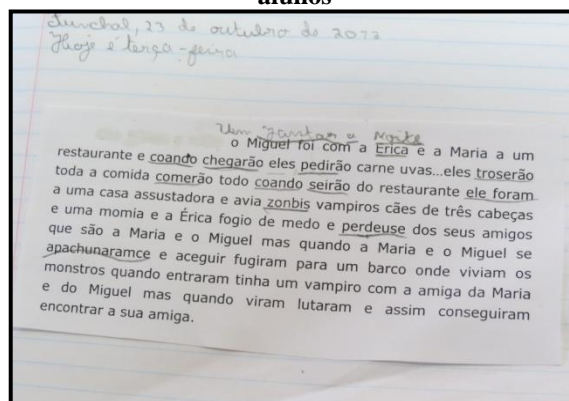 alunos
Funchal, 23 de outubro de 2012
Hoje é terça-feira
Um Jantar a Noite
o Miguel foi com a Erica e a Maria a um
restaurante e coando chegarão eles pedirão carne uvas...eles troserão
toda a comida comerão todo coando seirão do restaurante ele foram
a uma casa assustadora e avia zonbis vampiros cães de três cabeças
e uma momia e a Érica fogio de medo e perdeuse dos seus amigos
que são a Maria e o Miguel mas quando a Maria e o Miguel se
apachunaramce e aceguir fugiram para um barco onde viviam os
monstros quando entraram tinha um vampiro com a amiga da Maria
e do Miguel mas quando viram lutaram e assim conseguiram
encontrar a sua amiga.